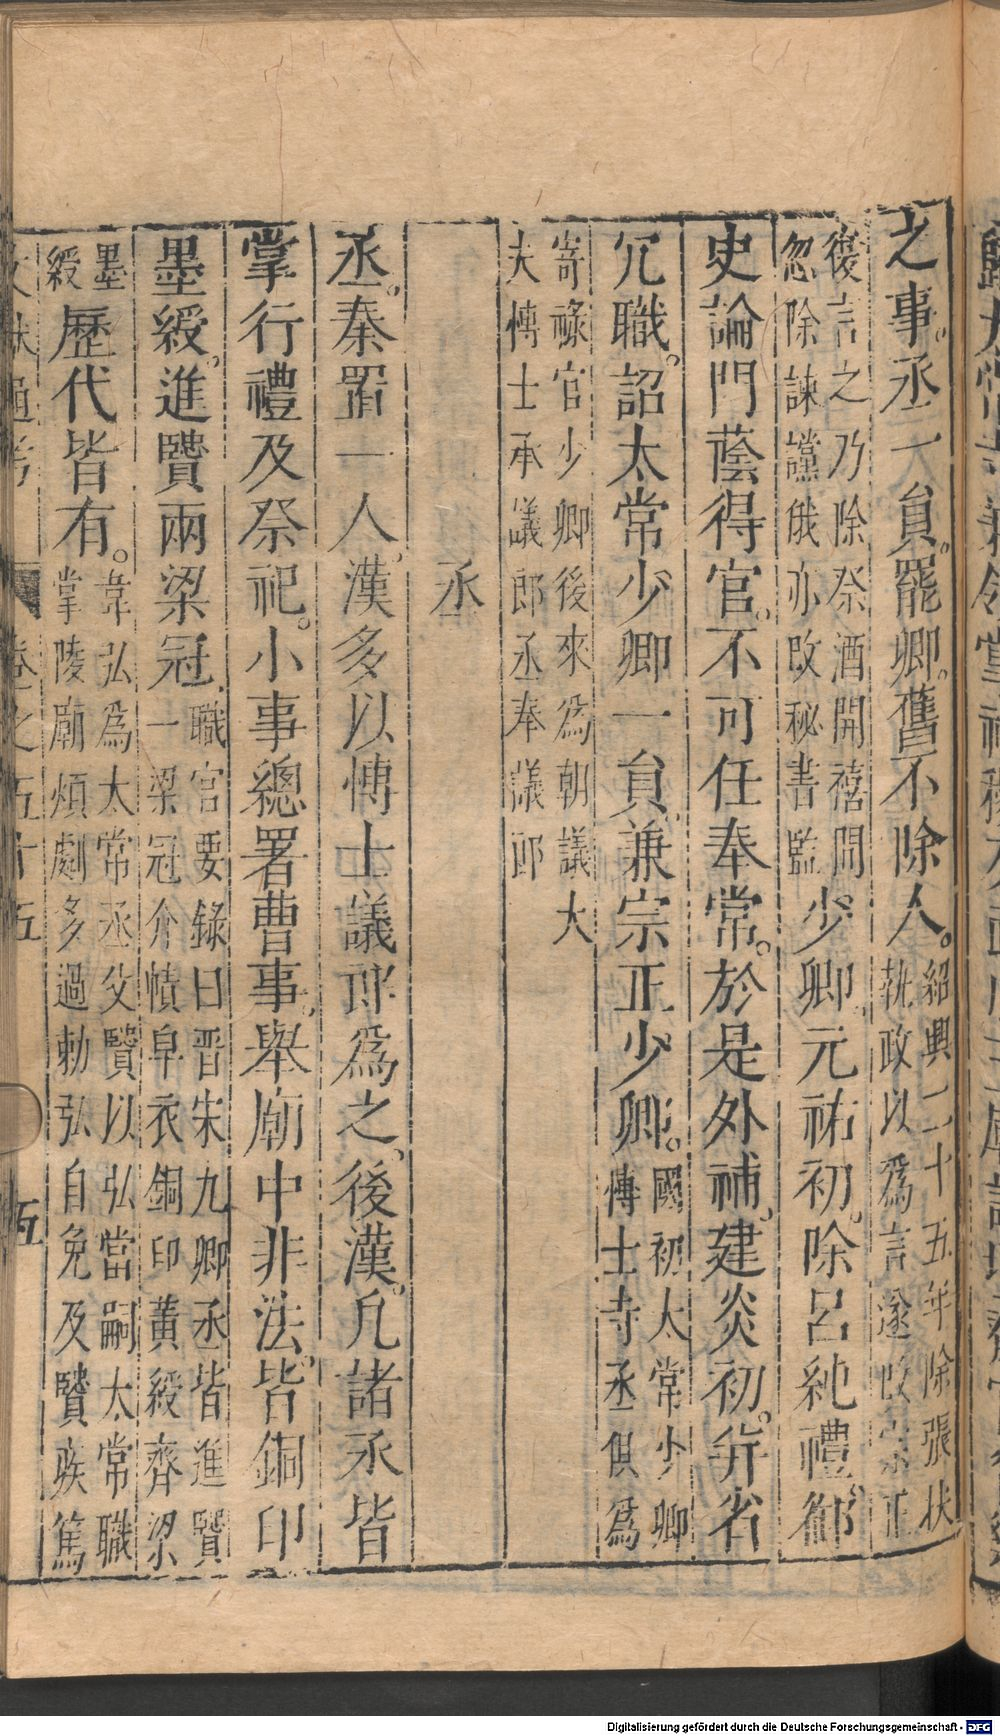 之事丞一人貟罷卿舊不除人。紹興二十五年除張扶
執政以為言遂改宗正
復言之乃除祭酒開禧間
忽除諫議俄亦改秘書監少卿元祐初除呂純禮御
史論門蔭得官不可任奉常。於是外補建炎初并省
冗職詔太常少卿一貟兼宗正少卿。國初太常少卿
博士寺丞俱為
寄祿官少卿後來為朝議大
夫博士承議郎丞奉議郎
丞
丞秦置一人漢多以博士議郎為之後漢凡諸丞皆
掌行禮及祭祀小事總署曹事舉廟中非法皆銅印
墨綬進賢兩梁冠職官要錄曰晉宋九卿丞皆進賢
一梁冠介幘皁衣銅印黃綬齊梁
墨
綬歷代皆有。韋弘為太常丞父賢以弘當嗣太常職
掌陵廟煩劇多過勅弘自免及賢疾篤
文獻通考 卷之五十五 五
Digitalisierung gefördert durch die Deutsche Forschungsgemeinschaft - DFG